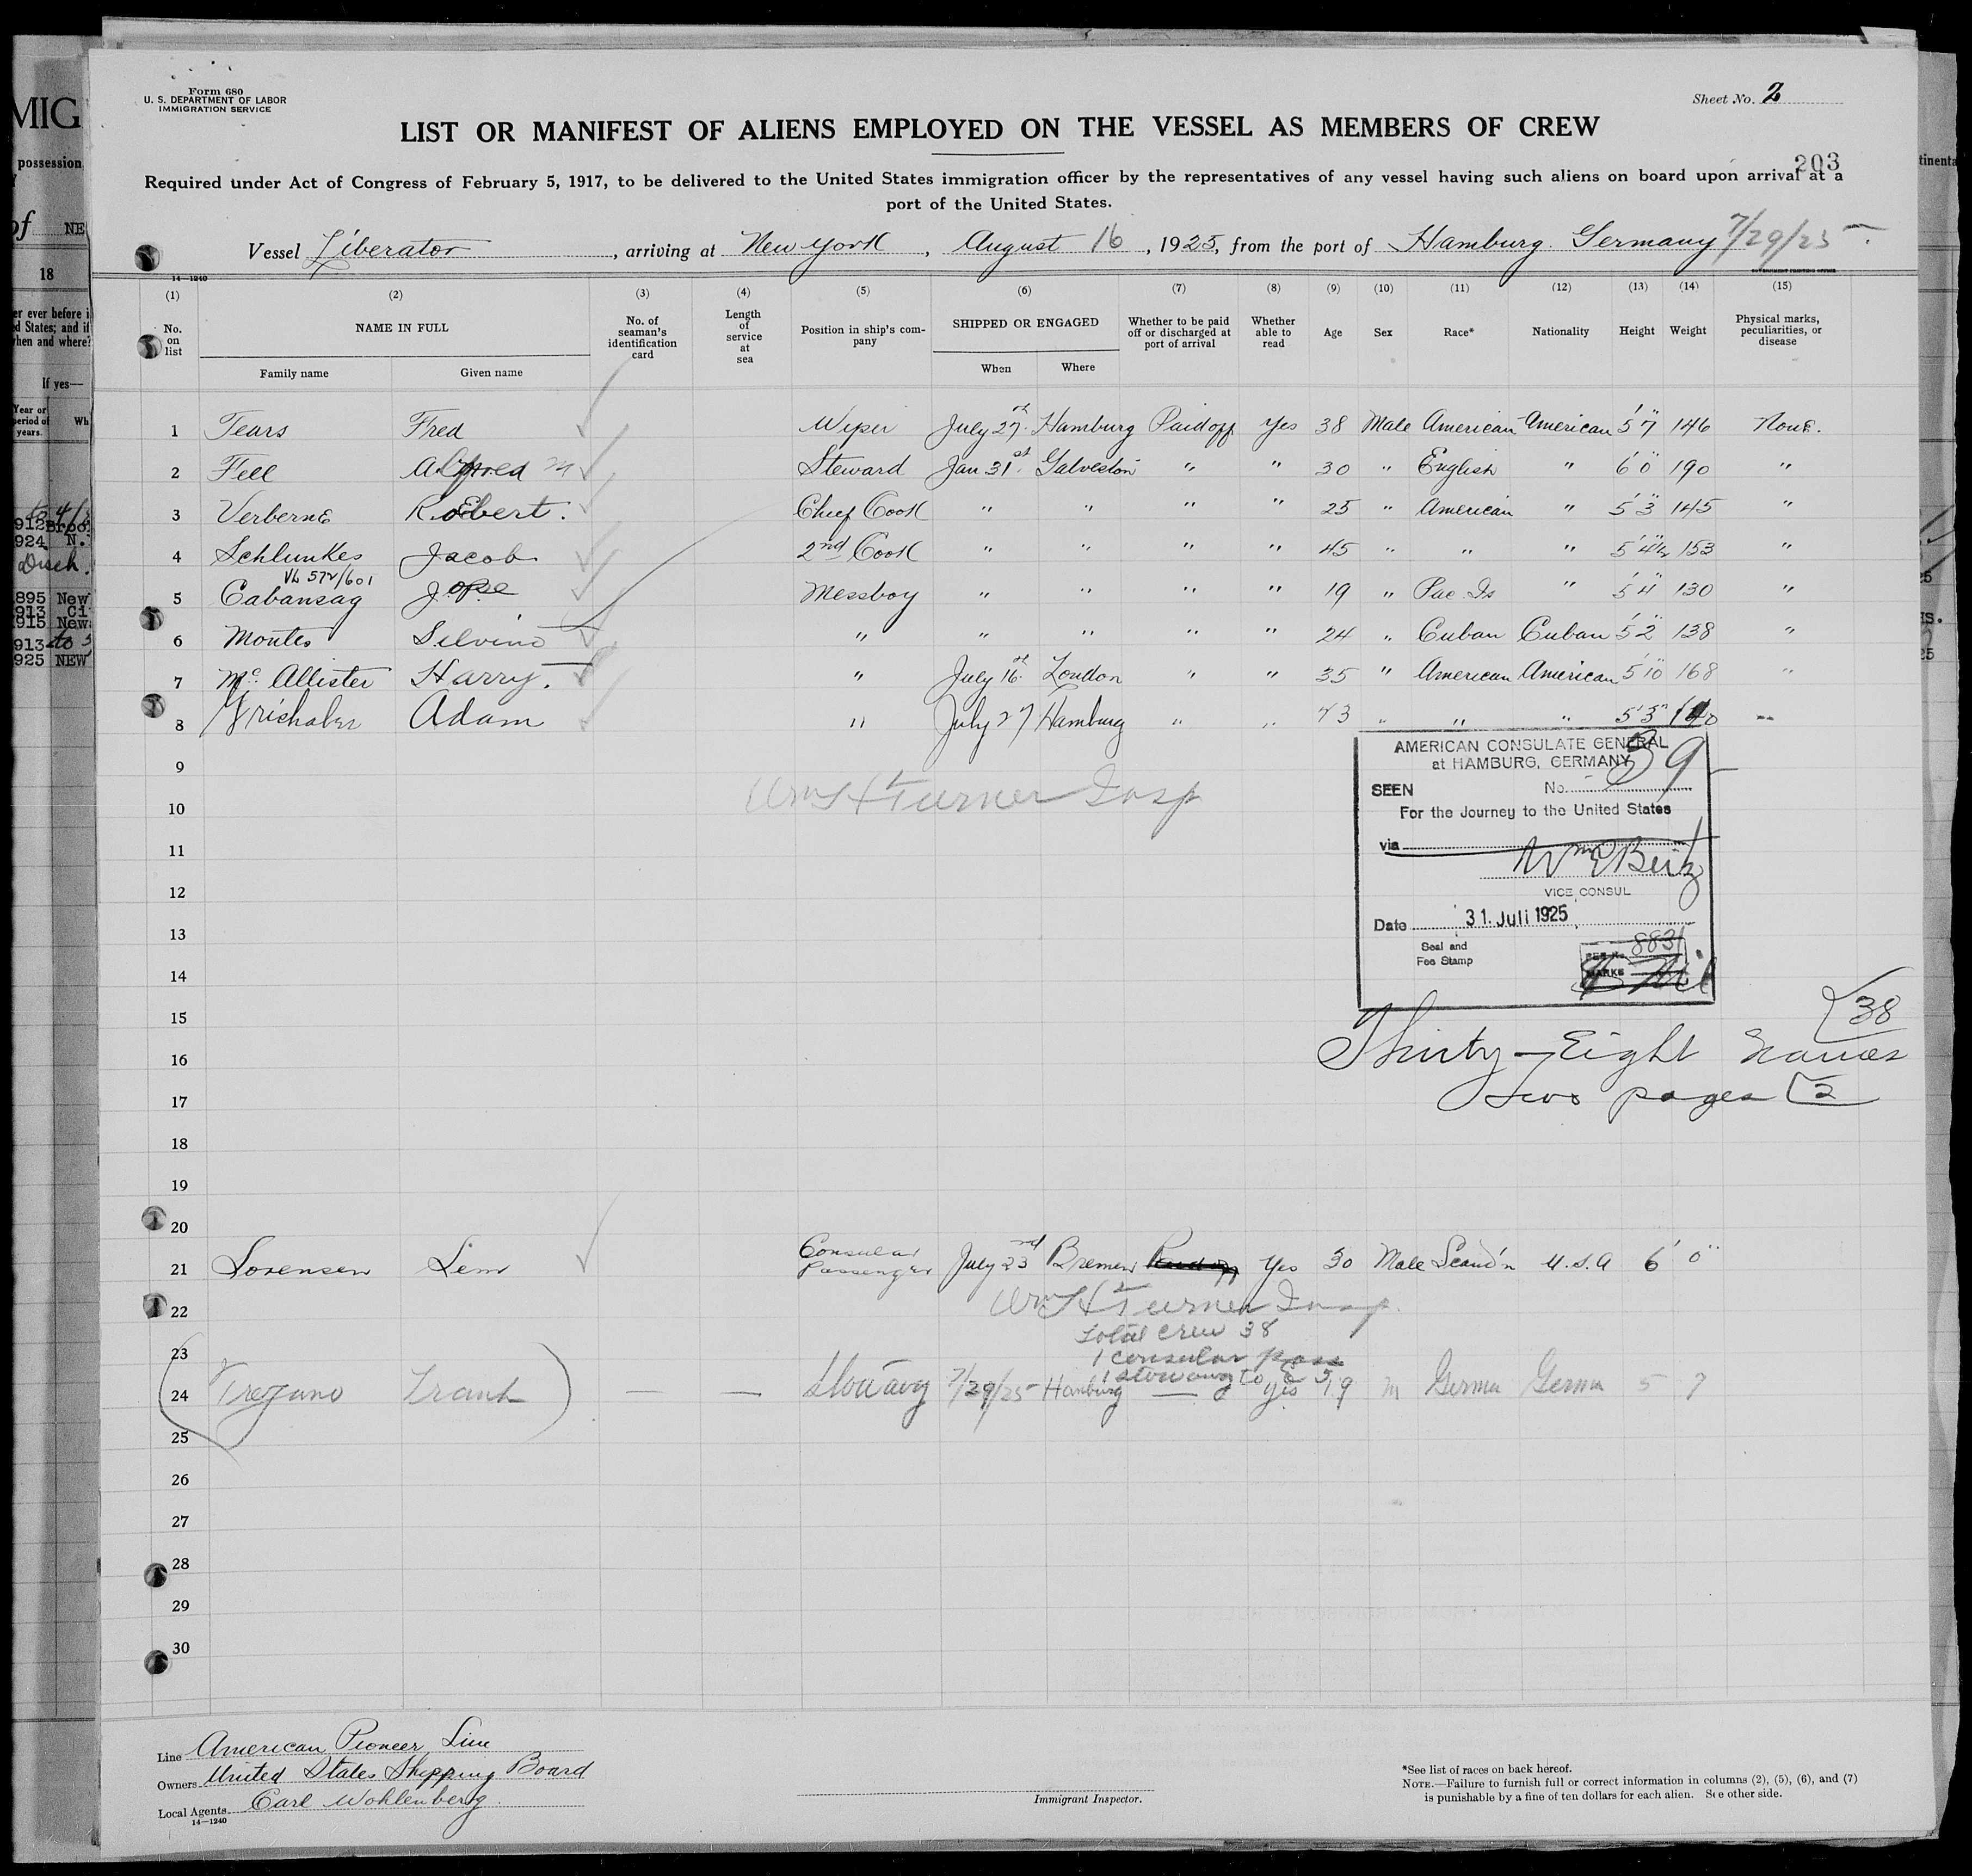 Form 680
U. S. DEPARTMENT OF LABOR
IMMIGRATION SERVICE
Sheet No. 2
LIST OR MANIFEST OF ALIENS EMPLOYED ON THE VESSEL AS MEMBERS OF CREW
203
Required under Act of Congress of February 5, 1917, to be delivered to the United States immigration officer by the representatives of any vessel having such aliens on board upon arrival at a
port of the United States.
Vessel Liberator, arriving at New York, August 16, 1925, from the port of Hamburg Germany 7/29/25
14—1240
(1) (2) (3) (4) (5) (6) (7) (8) (9) (10) (11) (12) (13) (14) (15)
No. on list NAME IN FULL No. of seaman's identification card Length of service at sea Position in ship's company SHIPPED OR ENGAGED Whether to be paid off or discharged at port of arrival Whether able to read Age Sex Race* Nationality Height Weight Physical marks, peculiarities, or disease
Family name Given name When Where
1 Tears Fred Wiper July 27 Hamburg Paid off Yes 38 Male American American 5'7" 146 None.
2 Fell Alfred M Steward Jan 31st Galveston " " 30 " English " 6'0" 190 "
3 Verberne Robert. Chief Cook " " " " 25 " American " 5'3" 145 "
4 Schlunkes Jacob 2nd Cook " " " " 45 " " " 5'4½ 153 "
VL 572/601
5 Cabansag Jose Messboy " " " " 19 " Pac. Is " 5'4" 130 "
6 Montes Silvino " " " " " 24 " Cuban Cuban 5'2" 138 "
7 McAllister Harry. " July 16 London " " 35 " American American 5'10" 168 "
8 Grishaber Adam " July 27 Hamburg " " 43 " " " 5'3" 140 --
9
10 Wm H Turner Insp
11
12
13
14
15
16
17
18
19
20
AMERICAN CONSULATE GENERAL
at HAMBURG, GERMANY
SEEN No. 39
For the Journey to the United States
via
VICE CONSUL
Date 31. Juli 1925
Seal and
Fee Stamp
8831
MARKS
38
Thirty-Eight Names
two pages 2
21 Sorensen Lem Consular Passenger July 23rd Bremen Paid off Yes 30 Male Scand'n U.S.A 6' 0"
22 Wm H Turner Insp.
Total crew 38
23 1 consular pass
1 stowaway to
24 Frank Stowaway 7/29/25 Hamburg — yes 19 m German German 5 7
25
26
27
28
29
30
Line American Pioneer Line
Owners United States Shipping Board
Local Agents Carl Wohlenberg
14—1240
Immigrant Inspector.
*See list of races on back hereof.
NOTE.—Failure to furnish full or correct information in columns (2), (5), (6), and (7)
is punishable by a fine of ten dollars for each alien. See other side.